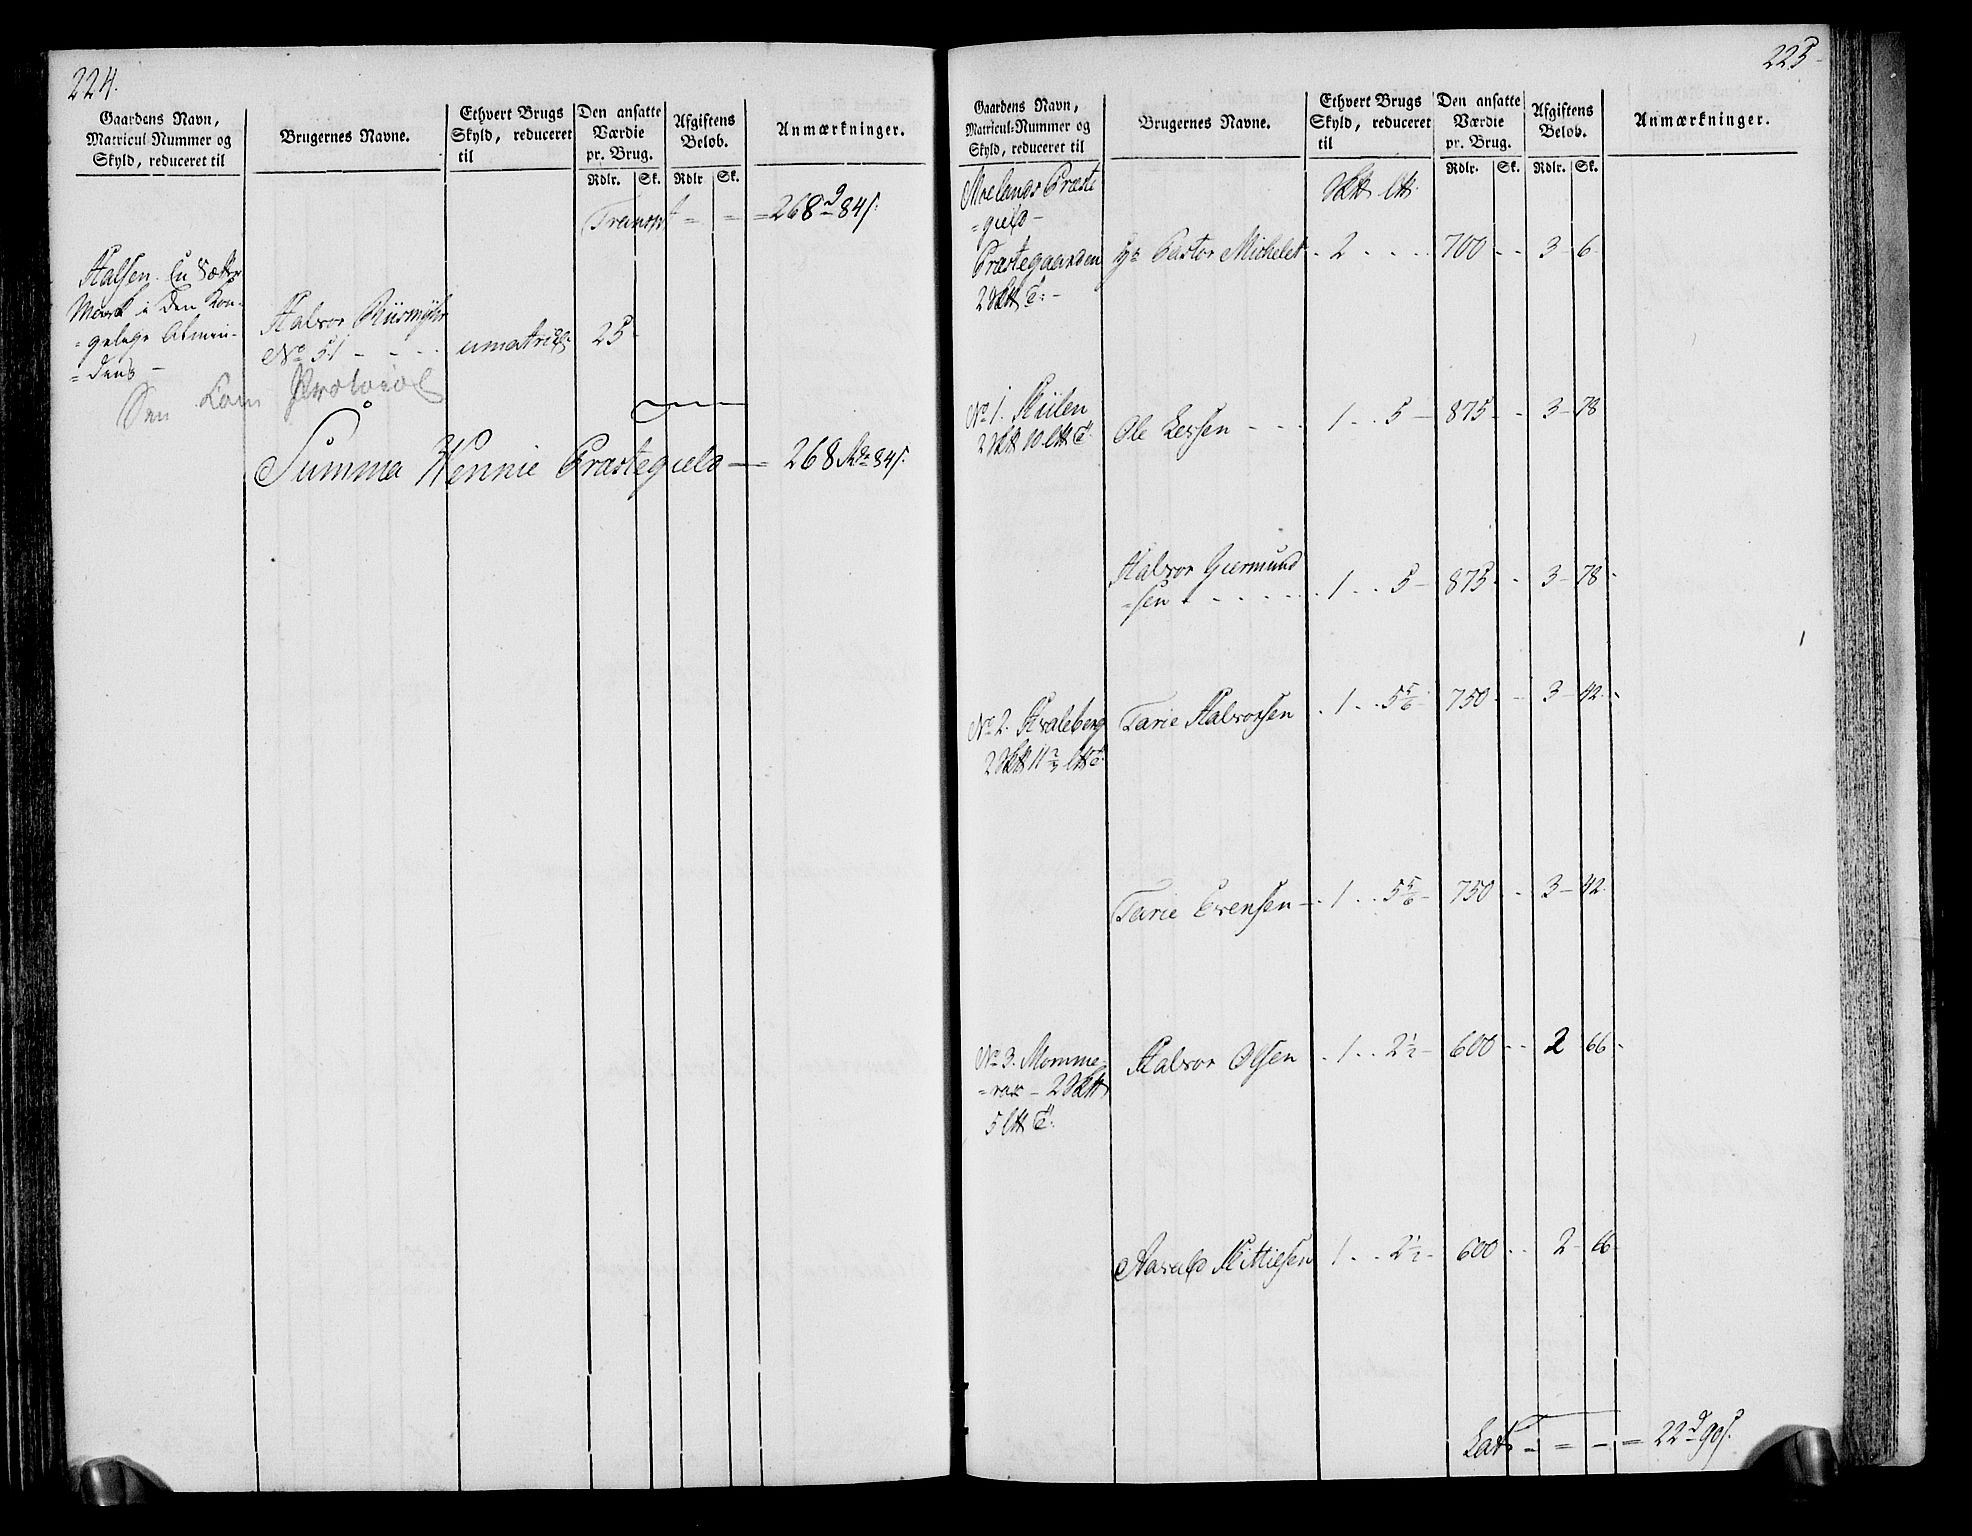 224.
Gaardens Navn,
Matricul Nummer og
Skyld, reduceret til
Brugernes Navne.
Ethvert Brugs
Skyld, reduceret
til
Den ansatte
Værdie
pr. Brug.
Rdlr. Sk.
Afgiftens
Beløb.
Rdlr Sk.
Anmærkninger.
Transpt = = = 268 d 84 s.
Halsen. En
i den Kon-
=gelige Almin-
=dens -
Halvor Riismyhr
No 51 - - - umatric. 25 -
Protocol
Summa Hennie Præstegield = 268 Rd 84 s.
225
Gaardens Navn,
Matricul-Nummer og
Skyld, reduceret til
Brugernes Navne.
Ethvert Brugs
Skyld, reduceret
til
Den ansatte
Værdie
pr. Brug.
Rdlr. Sk.
Afgiftens
Beløb.
Rdlr. Sk.
Anmærkninger.
Moelands Præste
=gield -
Præstegaarden Hr Pastor Michelet - 2 - - - - 700 - - 3 - 6
No 1. Kiilen
Ole Lessen - - - 1 - - 5 - 875 - - 3 - 78
Halvor Giermund
=sen - - - - - 1 - - 5 - 875 - - 3 - 78 -
No 2. Kvaleberg Tarie Halvorsen - 1 - - 5 5/6 - 750 - - 3 - 42 -
Tarie Evensen - 1 - - 5 5/6 - 750 - - 3 - 42
No 3. Momme-
Halvor Olsen - 1 - - 2 1/2 - 600 - - 2 66 -
Harald Kittilsen 1 - - 2 1/2 - 600 - - 2 - 66
Lat. - = - = 22 d 90 s.